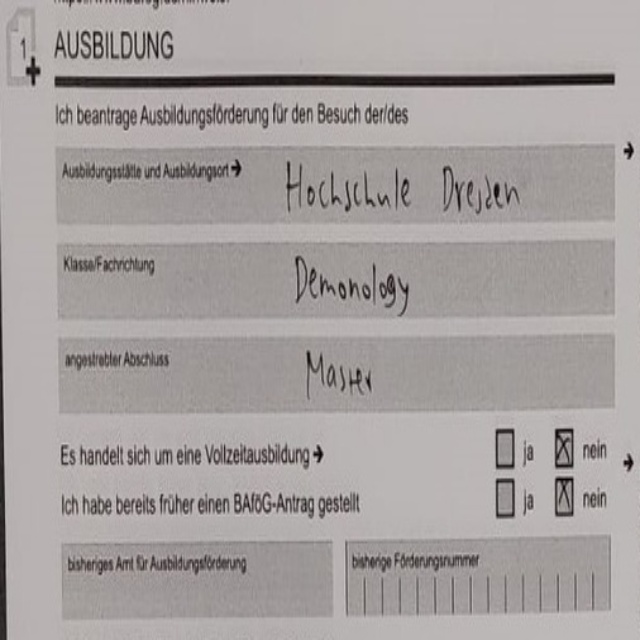 1 AUSBILDUNG
Ich beantrage Ausbildungsförderung für den Besuch der/des
Ausbildungsstätte und Ausbildungsort → Hochschule Dresden
Klasse/Fachrichtung Demonology
angestrebter Abschluss Master
Es handelt sich um eine Vollzeitausbildung → ja nein
Ich habe bereits früher einen BAföG-Antrag gestellt ja nein
bisheriges Amt für Ausbildungsförderung bisherige Förderungsnummer